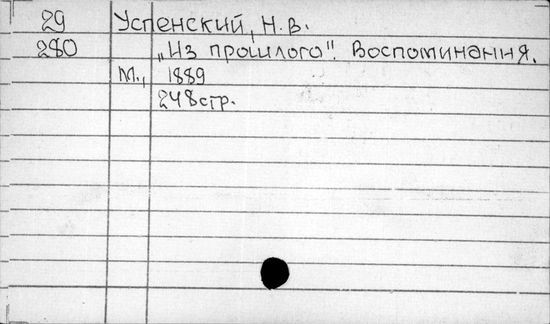 29 Успенский, Н. В.
280 „Из прошлого". Воспоминания.
М., 1889
248стр.